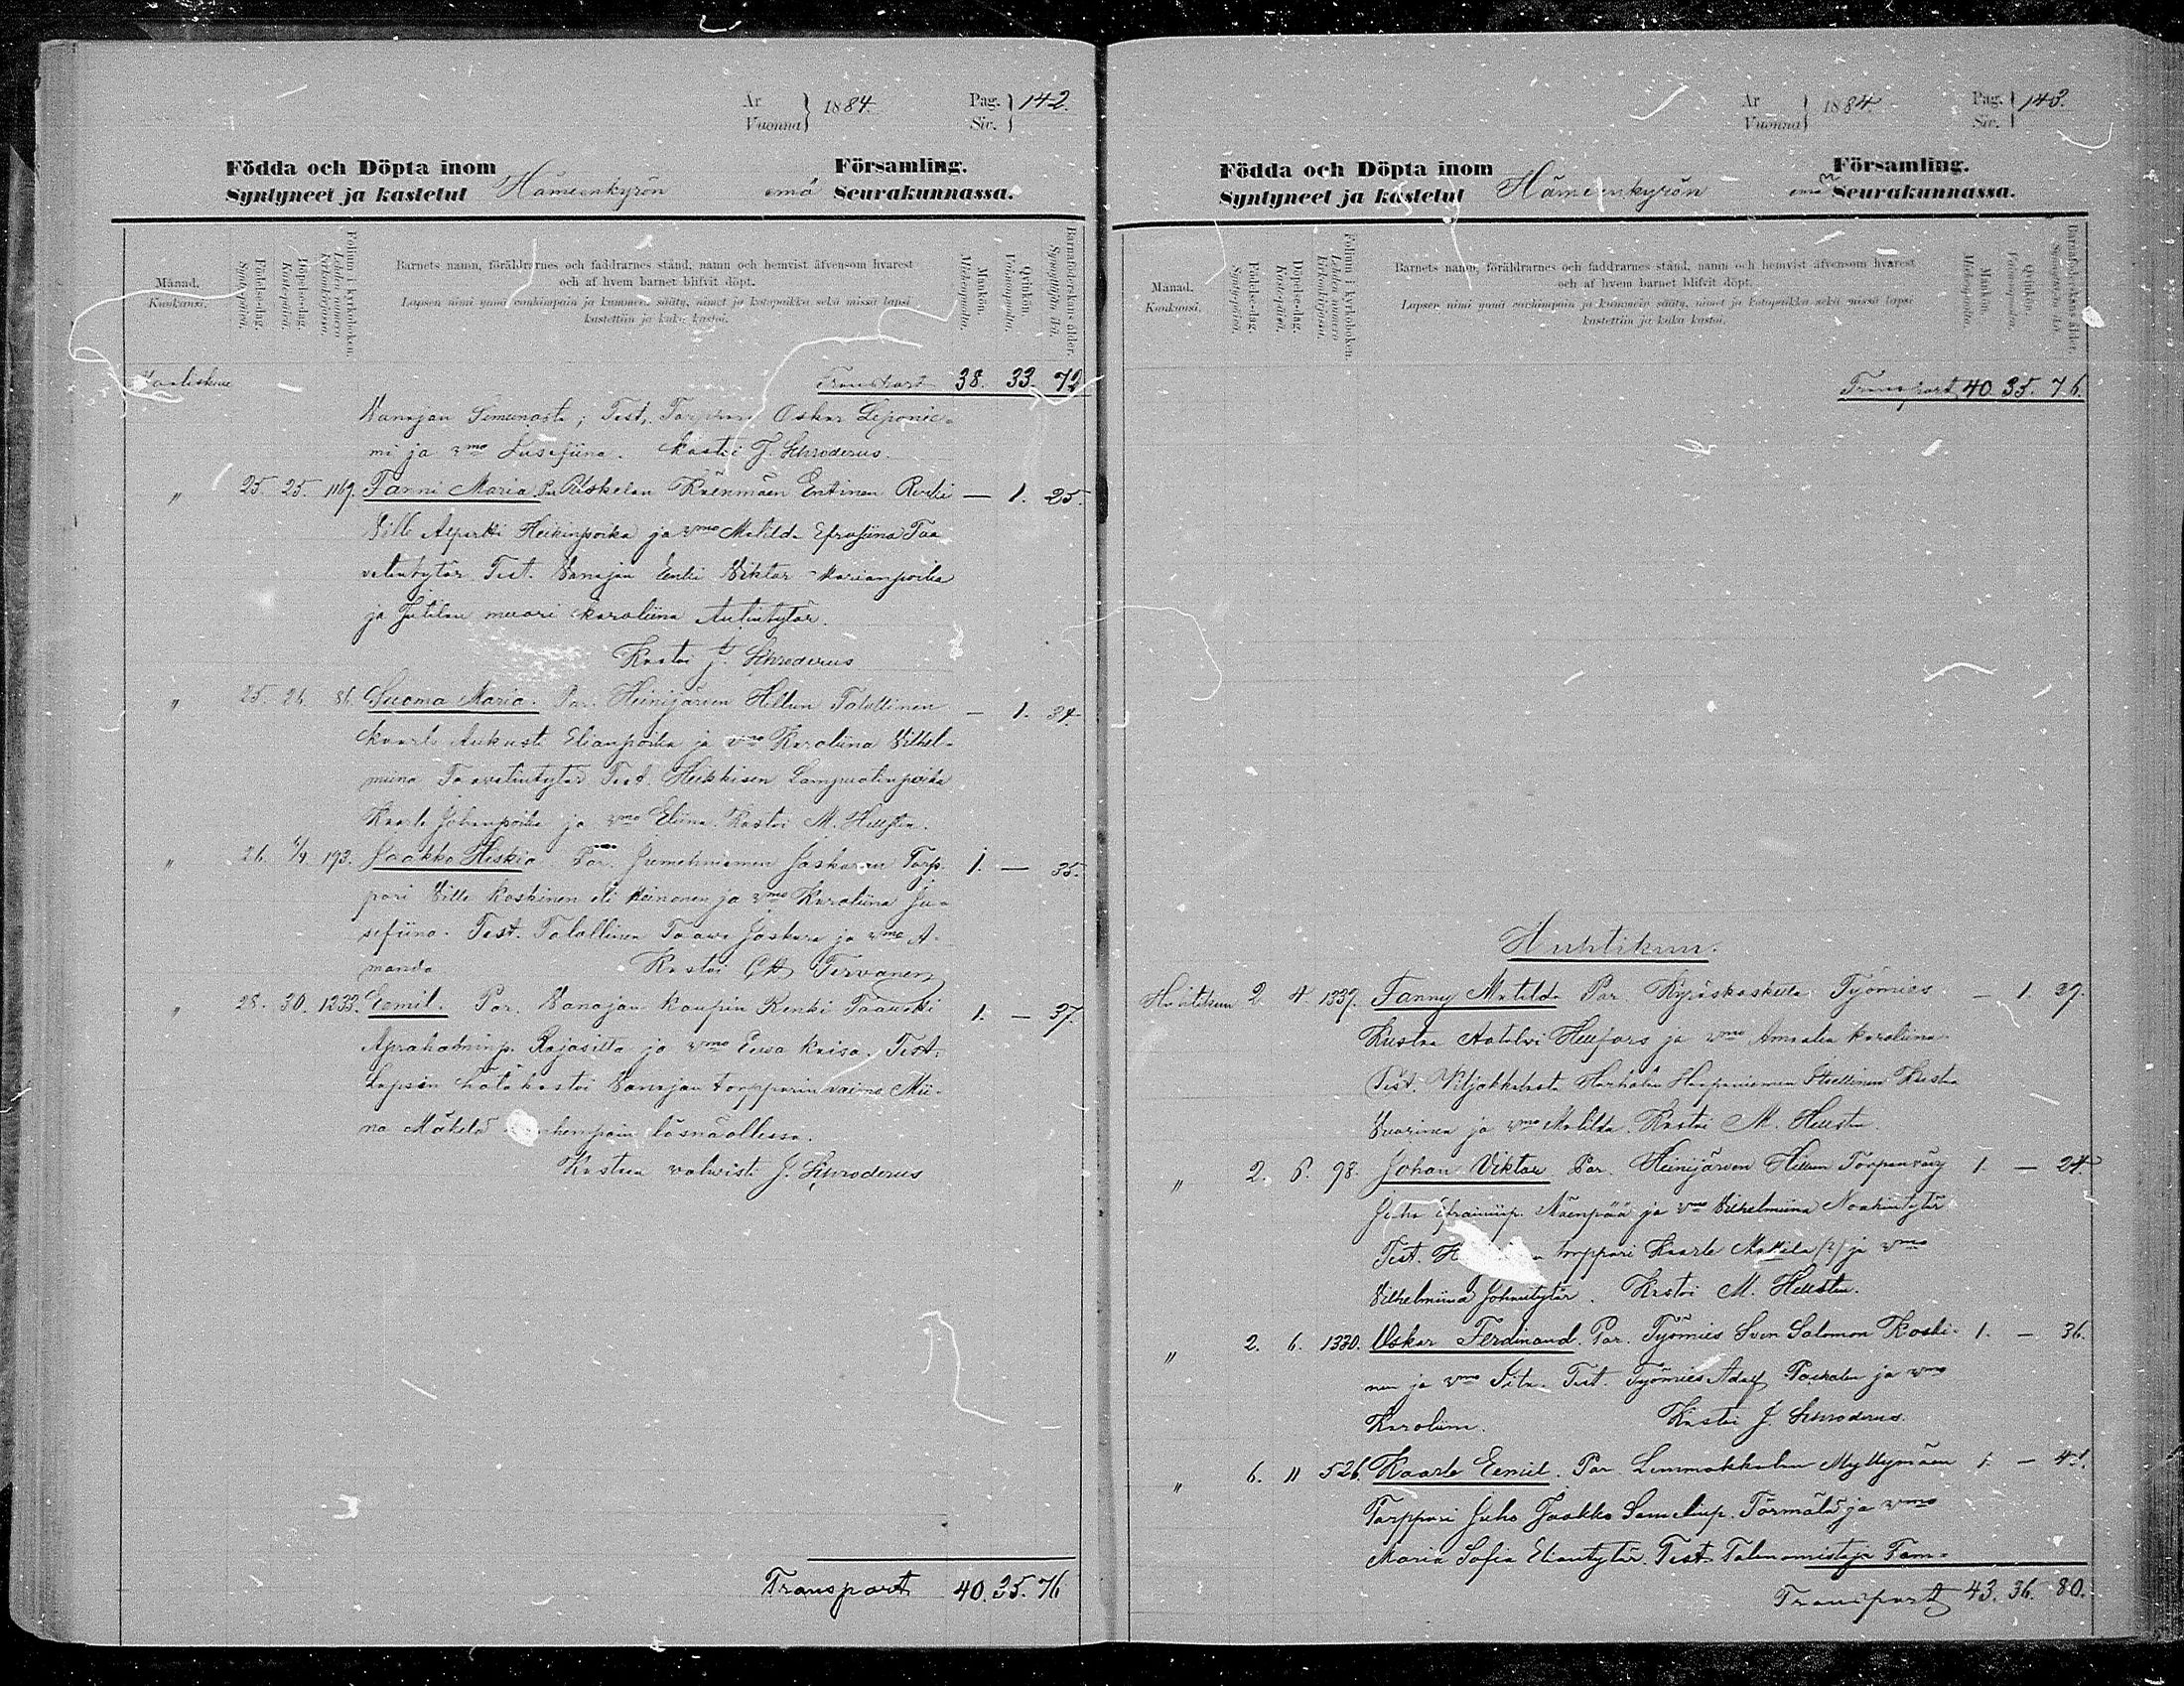 År
Vuonna } 1884. Pag.
Siv. } 142.
Födda och Döpta inom Församling.
Syntyneet ja kastetut Hämeenkyrön emä Seurakunnassa.
Månad.
Kuukausi.
Födelse-dag.
Syntypäivä.
Döpelse-dag.
Kastepäivä.
Folium i kyrkoboken.
Lehden numero
kirkonkirjassa.
Barnets namn, föräldrarnes och faddrarnes stånd, namn och hemvist äfvensom hvarest
och af hvem barnet blifvit döpt.
Lapsen nimi ynnä vanhimpain ja kummein sääty, nimet ja kotopaikka sekä missä lapsi
kastettiin ja kuka kastoi.
Mankön.
Miehenpuolia.
Qvinkön.
Vaimonpuolia.
Barnaföderskans ålder.
Synnyttäjän ikä.
Maaliskuu Transport 38. 33. 72
Vanajan Simunasta; Test. Torppari Oskar Leponie-
mi ja vmo Josefiina. Kastoi J. Schroderus.
" 25. 25. 1169. Fanni Maria Par. Uskelan Känmäen Entinen Renki — 1. 25.
Ville Alpertti Heikinpoika ja vmo Matilda Efrosiina Taa
vetintytär Test. Vanajan Renki Viktor Marianpoika
ja Jutilan muori Karoliina Antintytär.
Kastoi J. Schroderus
" 25. 26. 86. Suoma Maria. Par. Heinijärven Hillun Talollinen — 1. 34.
Kaarle Aukusti Elianpoika ja vmo Karoliina Vilhel-
miina Taavetintytär Test. Heikkisen Lampuotinpoika
Kaarle Johanpoika ja vmo Eliina. Kastoi M. Hellstén.
" 26. 6/4 193. Jaakko Hiskia Par. Jumesniemen Jaskaran Torp- 1. — 35.
pari Ville Koskinen eli Heinonen ja vmo Karoliina Ju-
sefiina. Test. Talollinen Taave Jaskara ja vmo A-
manda Kastoi Tervanen
" 28. 30. 1233. Eemil. Par. Vanajan Kaupin Renki Taavetti 1. — 37.
Aprahaminp. Rajasilta ja vmo Eeva Kaisa. Test.
Lapsen hätäkastoi Vanajan torpparin vaimo Mii-
na Mäkelä hempain läsnäollessa.
Kasteen vahvisti J. Schroderus
Transport 40. 35. 76
År
Vuonna } 1884 Pag.
Siv. } 143.
Födda och Döpta inom Församling.
Syntyneet ja kastetut Hämeenkyrön emä Seurakunnassa.
Månad.
Kuukausi.
Födelse-dag.
Syntypäivä.
Döpelse-dag.
Kastepäivä.
Folium i kyrkoboken.
Lehden numero
kirkonkirjassa.
Barnets namn, föräldrarnes och faddrarnes stånd, namn och hemvist äfvensom hvarest
och af hvem barnet blifvit döpt.
Lapsen nimi ynnä vanhimpain ja kummein sääty, nimet ja kotopaikka sekä missä lapsi
kastettiin ja kuka kastoi.
Mankön.
Miehenpuolia.
Qvinkön.
Vaimonpuolia.
Barnaföderskans ålder.
Synnyttäjän ikä.
Transport 40. 35. 76.
Huhtikuu.
Huhtikuu 2 4. 1339. Fanny Matilda Par. Kyröskoskella Työmies — 1. 39.
Kustaa Aatolvi Hellfors ja vmo Amalia Karoliina
Test. Viljakkalasta Harhalan Haapaniemen Itsellinen Kustaa
Vuorinen ja vmo Matilda. Kastoi M. Hellstén
" 2. 6. 98. Johan Viktor Par. Heinijärven Hillun Torpanväv. 1. — 24.
Juho Efraiminp. Mäenpää ja vmo Vilhelmiina Noakintytär
Test. torppari Kaarle Mattila (?) ja vmo
Vilhelmiina Johantytär. Kastoi M. Hellstén.
" 2. 6. 1330. Oskar Ferdinand. Par. Työmies Sven Salomon Koski- 1. — 36.
nen ja vmo Iita. Test. Työmies Adolf Paskalen ja vmo
Karoliina. Kastoi J. Schroderus.
" 6. 11 526. Kaarle Eemil. Par. Lemmakkalan Myllymäen 1. — 41.
Torppari Juho Jaakko Samelinp. Törmälä ja vmo
Maria Sofia Eliantytär. Test. Talonomistaja Fam-
Transport 43. 36. 80.